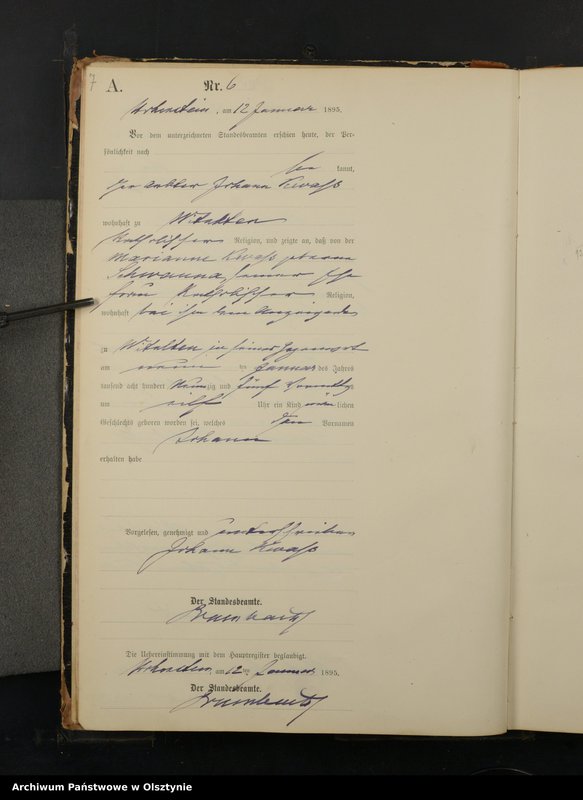 7
A. Nr. 6
am 12 Januar 1895.
Vor dem unterzeichneten Standesbeamten erschien heute, der Per-
sönlichkeit nach
be kannt,
Johann
wohnhaft zu
katholischer Religion, und zeigte an, daß von der
Marianne geborene
seiner Ehe
frau katholischer Religion,
wohnhaft bei ihm dem Anzeigenden
zu in seiner Gegenwart
am neun ten Januar des Jahres
tausend acht hundert neunzig und fünf Vormittags
um elf Uhr ein Kind männlichen
Geschlechts geboren worden sei, welches den Vornamen
Johann
erhalten habe
Vorgelesen, genehmigt und unterschrieben
Johann
Der Standesbeamte.
Die Uebereinstimmung mit dem Hauptregister beglaubigt.
am 12ten Januar 1895.
Der Standesbeamte.
Archiwum Państwowe w Olsztynie